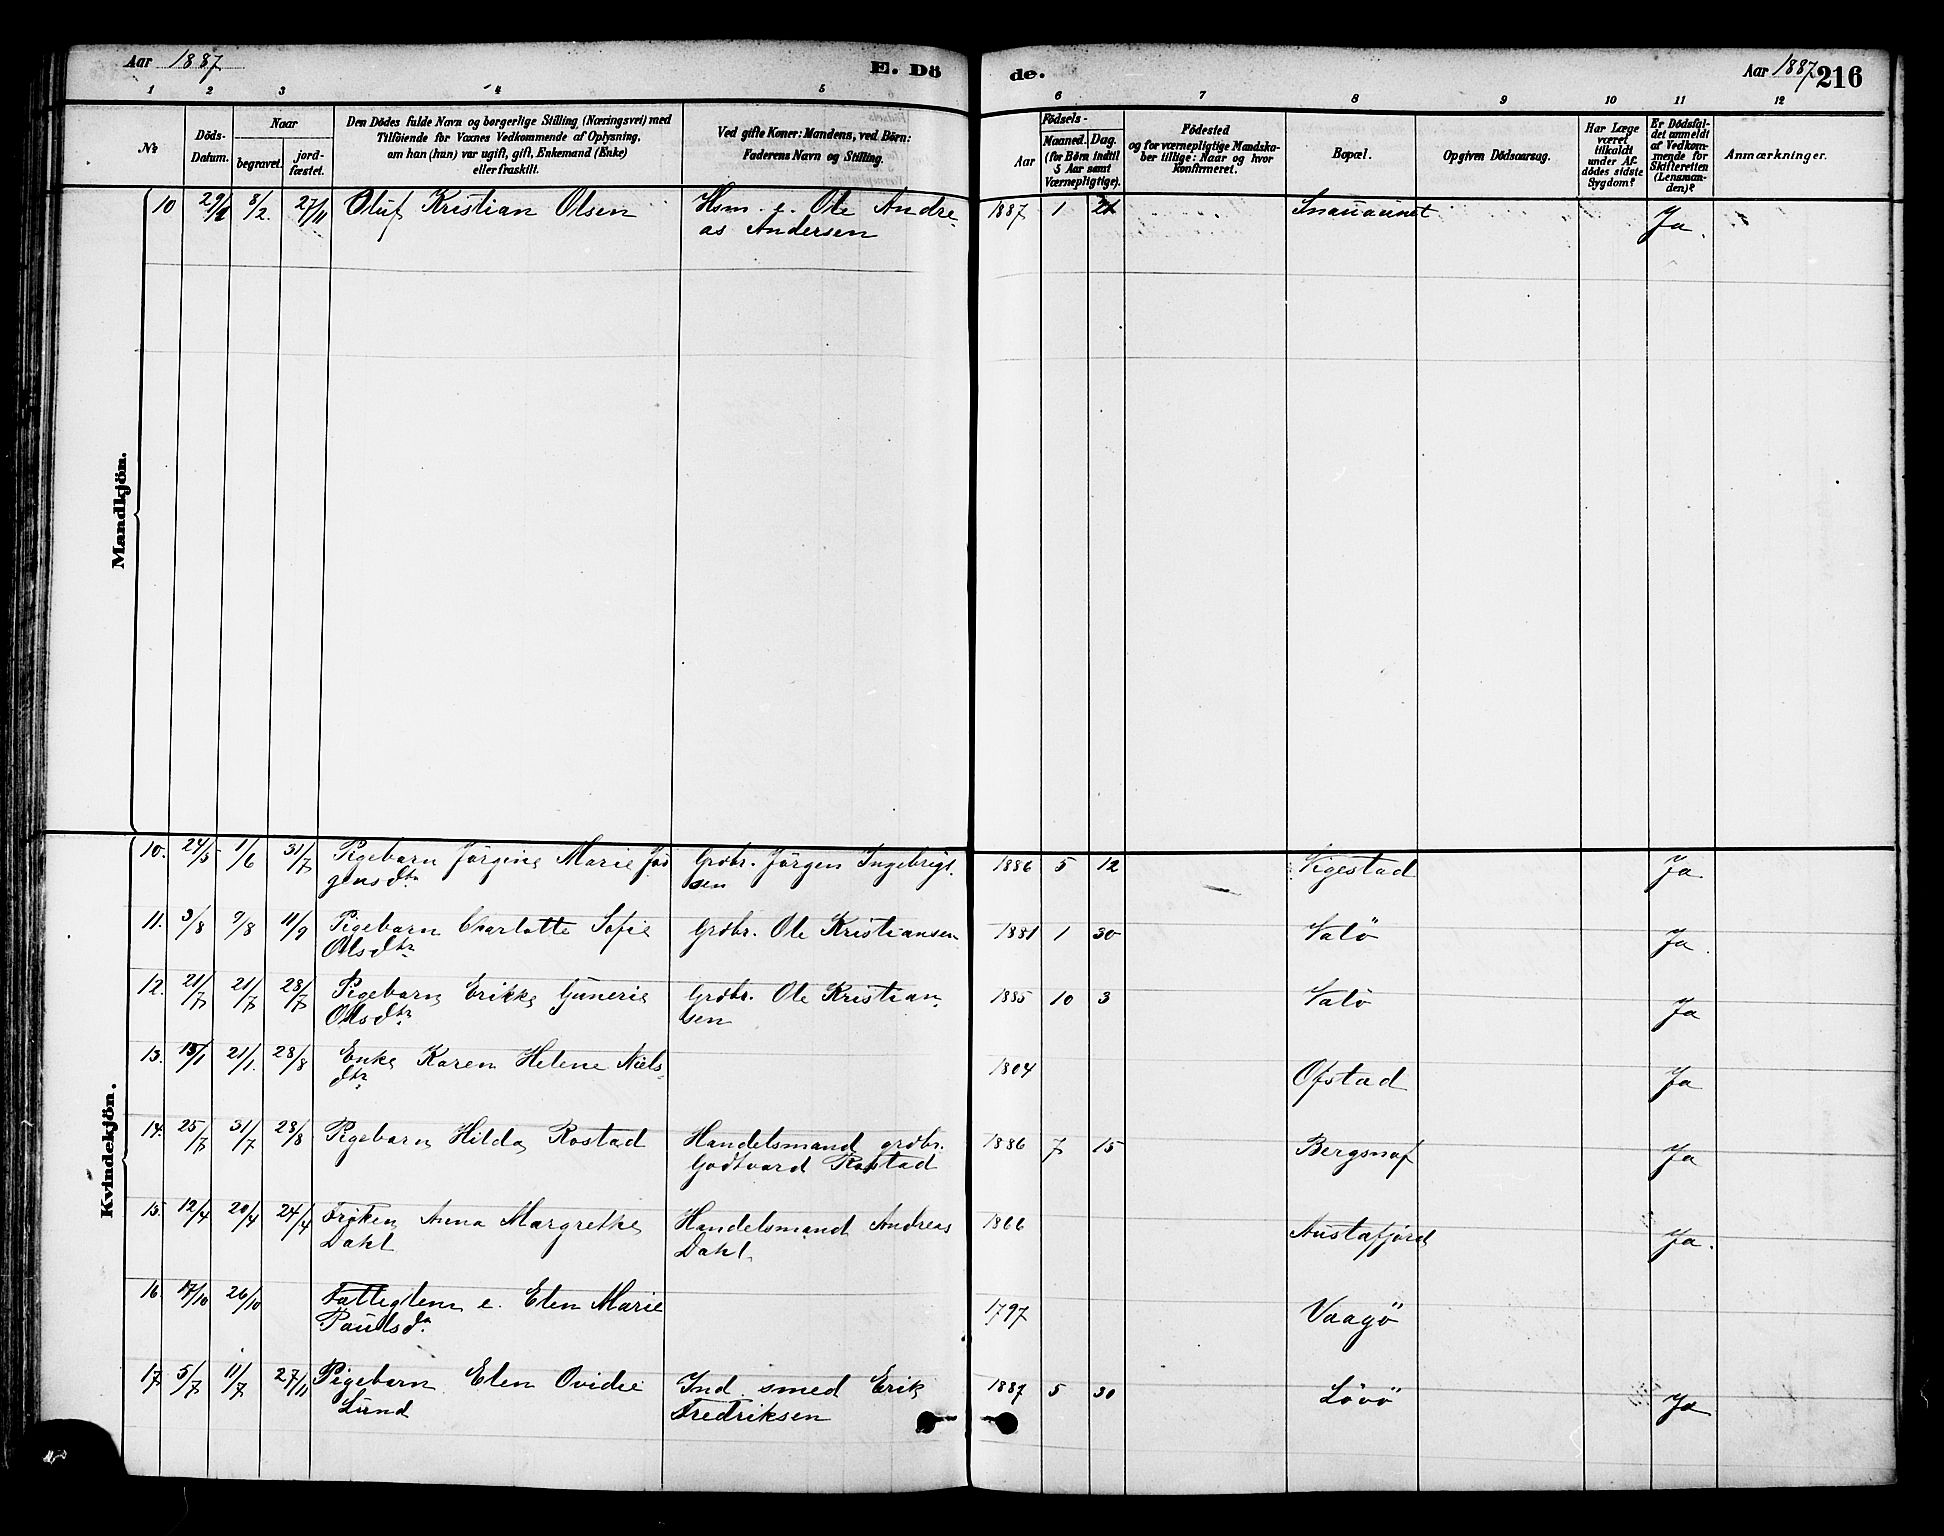 Aar 1887
E. Dö
de.
Aar 1887 216
1 2 3 4 5 6 7 8 9 10 11 12
№
Döds-
Datum.
Naar
begravet.
jord-
fæstet.
Den Dödes fulde Navn og borgerlige Stilling (Næringsvei) med
Tilföiende for Voxnes Vedkommende af Oplysning,
om han (hun) var ugift, gift, Enkemand (Enke)
eller fraskilt.
Ved gifte Koner: Mandens, ved Börn:
Faderens Navn og Stilling.
Födsels-
Aar
Maaned. Dag.
(for Börn indtil
5 Aar samt
Værnepligtige).
Födested
og for værnepligtige Mandska-
ber tillige: Naar og hvor
konfirmeret.
Bopæl.
Opgiven Dödsaarsag.
Har Læge
været
tilkaldt
under Af-
dödes sidste
Sygdom?
Er Dödsfal-
det anmeldt
af Vedkom-
mende for
Skifteretten
(Lensman-
den)?
Anmærkninger.
Mandkjön.
10 8/2 27/11 Oluf Kristian Olsen Hsm. e. Ole Andre- 1887 1 Ja.
as Andersen
Kvindekjön.
10. 24/5 1/6 31/7 Pigebarn Jörgine Marie Jör Grdbr. Jörgen Ingebrigt- 1886 5 12 Vigestad Ja
gensdtr sen
11. 3/8 9/8 11/9 Pigebarn Charlotte Sofie Grdbr. Ole Kristiansen 1881 1 30 Valö Ja.
Olsdtr
12. 21/7 21/7 28/7 Pigebarn Erikke Guneria Grdbr. Ole Kristian- 1885 10 3 Valö Ja
Olsdtr sen
13. 21/1. 28/8 Enke Karen Helene Niels- 1804 Ofstad Ja
dtr
14. 25/7 31/7 28/8 Pigebarn Hilda Rostad Handelsmand grdbr. 1886 7 15 Bergsnaf Ja
Godtvard Rostad
15. 12/4 20/4 24/4 Fröken Anna Margrethe Handelsmand Andreas 1866 Austafjord Ja.
Dahl Dahl
16. 17/10 26/10 Fattiglem e. Elen Marie 1797 Vaagö
Paulsdr
17 5/7 11/7 27/11 Pigebarn Elen Ovidie Ind. smed Erik 1887 5 30 Lövö Ja
Lund Fredriksen